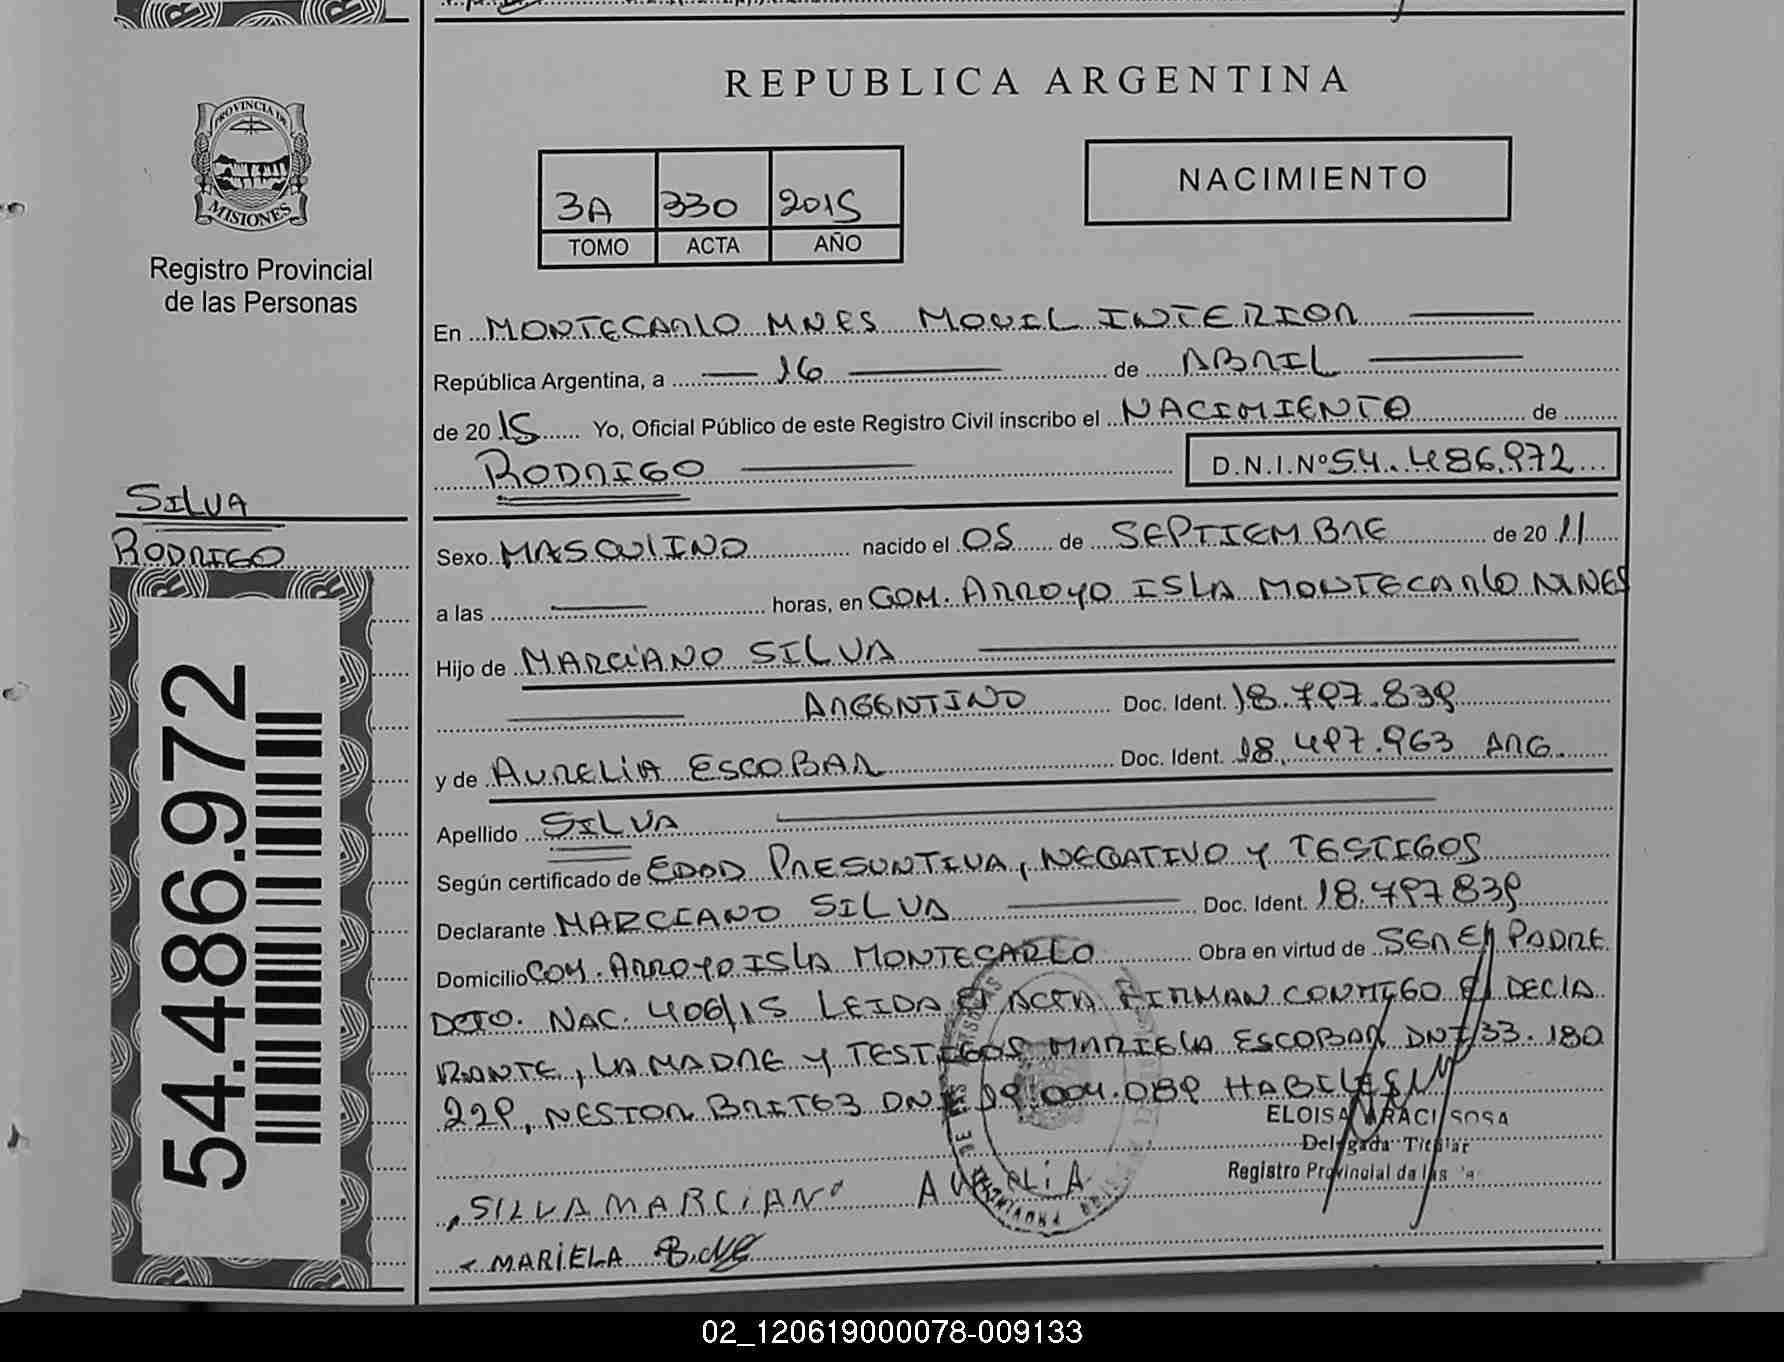 REPUBLICA ARGENTINA
PROVINCIA DE
MISIONES
Registro Provincial
de las Personas
3A 330 2015
TOMO ACTA AÑO
NACIMIENTO
En MONTECARLO MNES MOVIL INTERIOR
República Argentina, a 16 de ABRIL
de 2015 Yo, Oficial Público de este Registro Civil inscribo el NACIMIENTO de
RODRIGO D.N.I.Nº 54.486.972
SILVA
RODRIGO
Sexo MASQUINO nacido el 05 de SEPTIEMBRE de 2011
a las horas, en COM. ARROYO ISLA MONTECARLO MNES
Hijo de MARCIANO SILVA
ARGENTINO Doc. Ident. 18.797.839
y de AURELIA ESCOBAR Doc. Ident. 18.497.963 ARG.
Apellido SILVA
Según certificado de EDAD PRESUNTIVA, NEGATIVO Y TESTIGOS
Declarante MARCIANO SILVA Doc. Ident. 18.797839
Domicilio COM. ARROYO ISLA MONTECARLO Obra en virtud de SER EL PADRE
DCTO. NAC. 406/15 LEIDA EL ACTA FIRMAN CONMIGO EL DECLA
RANTE, LA MADRE Y TESTIGOS MARIELA ESCOBAR DNI 33.180
229, NESTOR BRITES DNI 29.004.089 HABILES
ELOISA ARACI SOSA
Delegada Titular
Registro Provincial de las
SILVA MARCIANO AURELIA
MARIELA
54.486.972
02_120619000078-009133